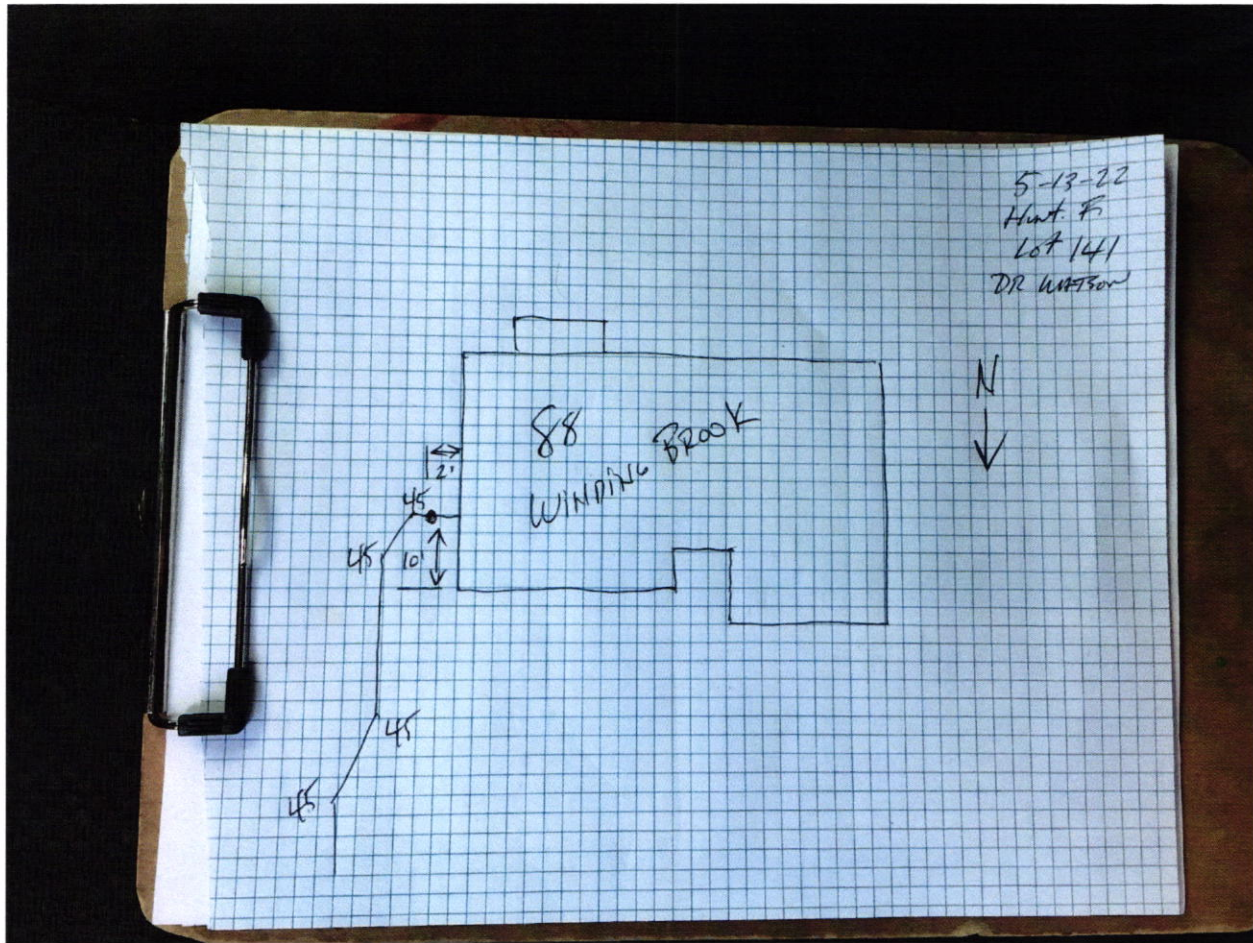 5-13-22
Hunt. F.
Lot 141
DR WATSON
N
88
WINDING BROOK
2'
45
45
10'
45
45